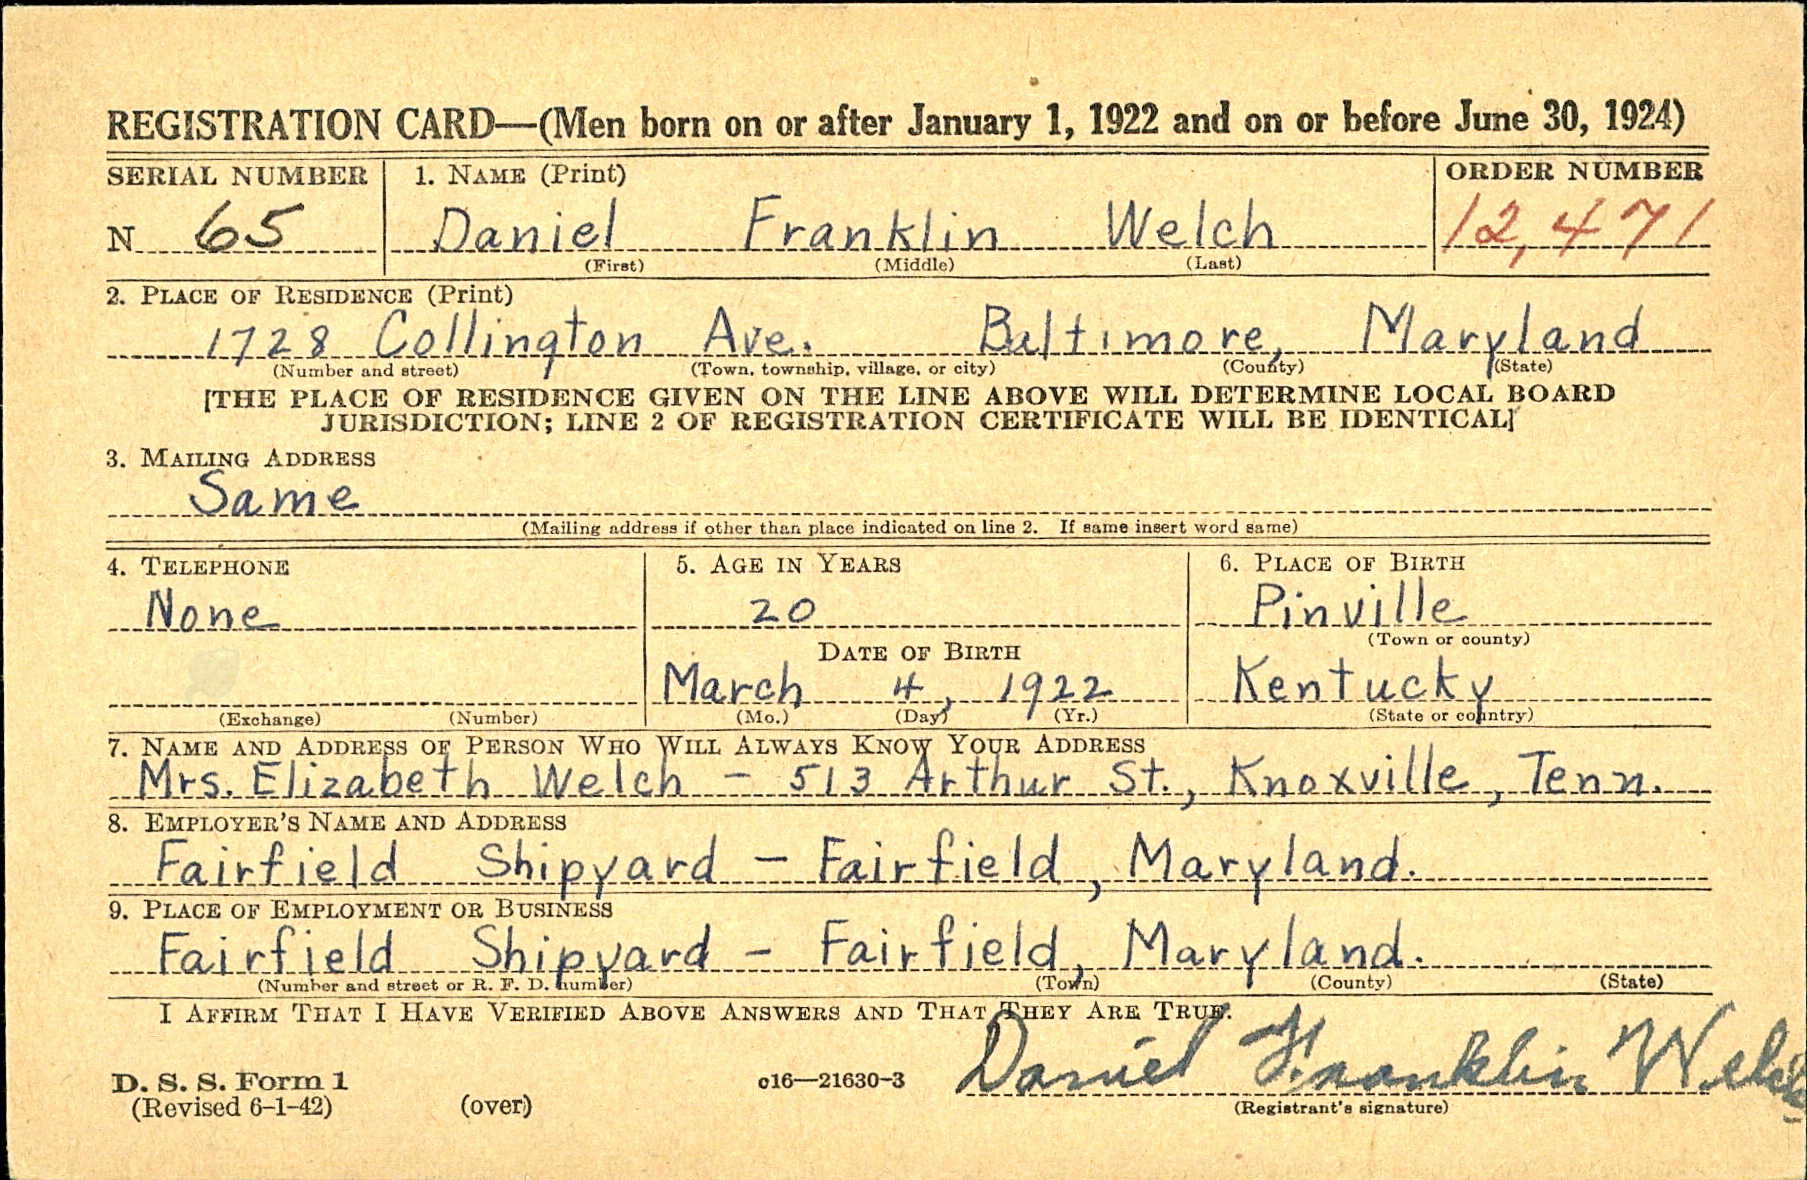 REGISTRATION CARD—(Men born on or after January 1, 1922 and on or before June 30, 1924)
SERIAL NUMBER 1. NAME (Print) ORDER NUMBER
N 65 Daniel Franklin Welch 12,471
(First) (Middle) (Last)
2. PLACE OF RESIDENCE (Print)
1728 Collington Ave. Baltimore, Maryland
(Number and street) (Town, township, village, or city) (County) (State)
[THE PLACE OF RESIDENCE GIVEN ON THE LINE ABOVE WILL DETERMINE LOCAL BOARD
JURISDICTION; LINE 2 OF REGISTRATION CERTIFICATE WILL BE IDENTICAL]
3. MAILING ADDRESS
Same
(Mailing address if other than place indicated on line 2. If same insert word same)
4. TELEPHONE 5. AGE IN YEARS 6. PLACE OF BIRTH
None 20 Pinville
(Town or county)
DATE OF BIRTH
March 4, 1922 Kentucky
(Exchange) (Number) (Mo.) (Day) (Yr.) (State or country)
7. NAME AND ADDRESS OF PERSON WHO WILL ALWAYS KNOW YOUR ADDRESS
Mrs. Elizabeth Welch – 513 Arthur St., Knoxville, Tenn.
8. EMPLOYER'S NAME AND ADDRESS
Fairfield Shipyard – Fairfield, Maryland.
9. PLACE OF EMPLOYMENT OR BUSINESS
Fairfield Shipyard – Fairfield, Maryland.
(Number and street or R. F. D. number) (Town) (County) (State)
I AFFIRM THAT I HAVE VERIFIED ABOVE ANSWERS AND THAT THEY ARE TRUE.
D. S. S. Form 1 c16—21630-3 Daniel Franklin Welch
(Revised 6-1-42) (over) (Registrant's signature)